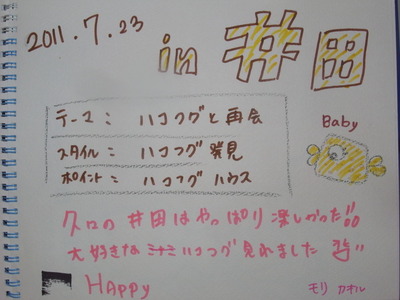 2011.7.23
in 井田
テーマ: ハコフグと再会
スタイル: ハコフグ発見
ポイント: ハコフグハウス
Baby
久口の井田はやっぱり楽しかった!!
大好きなミナミハコフグ見れました
HAppy
モリ カオル